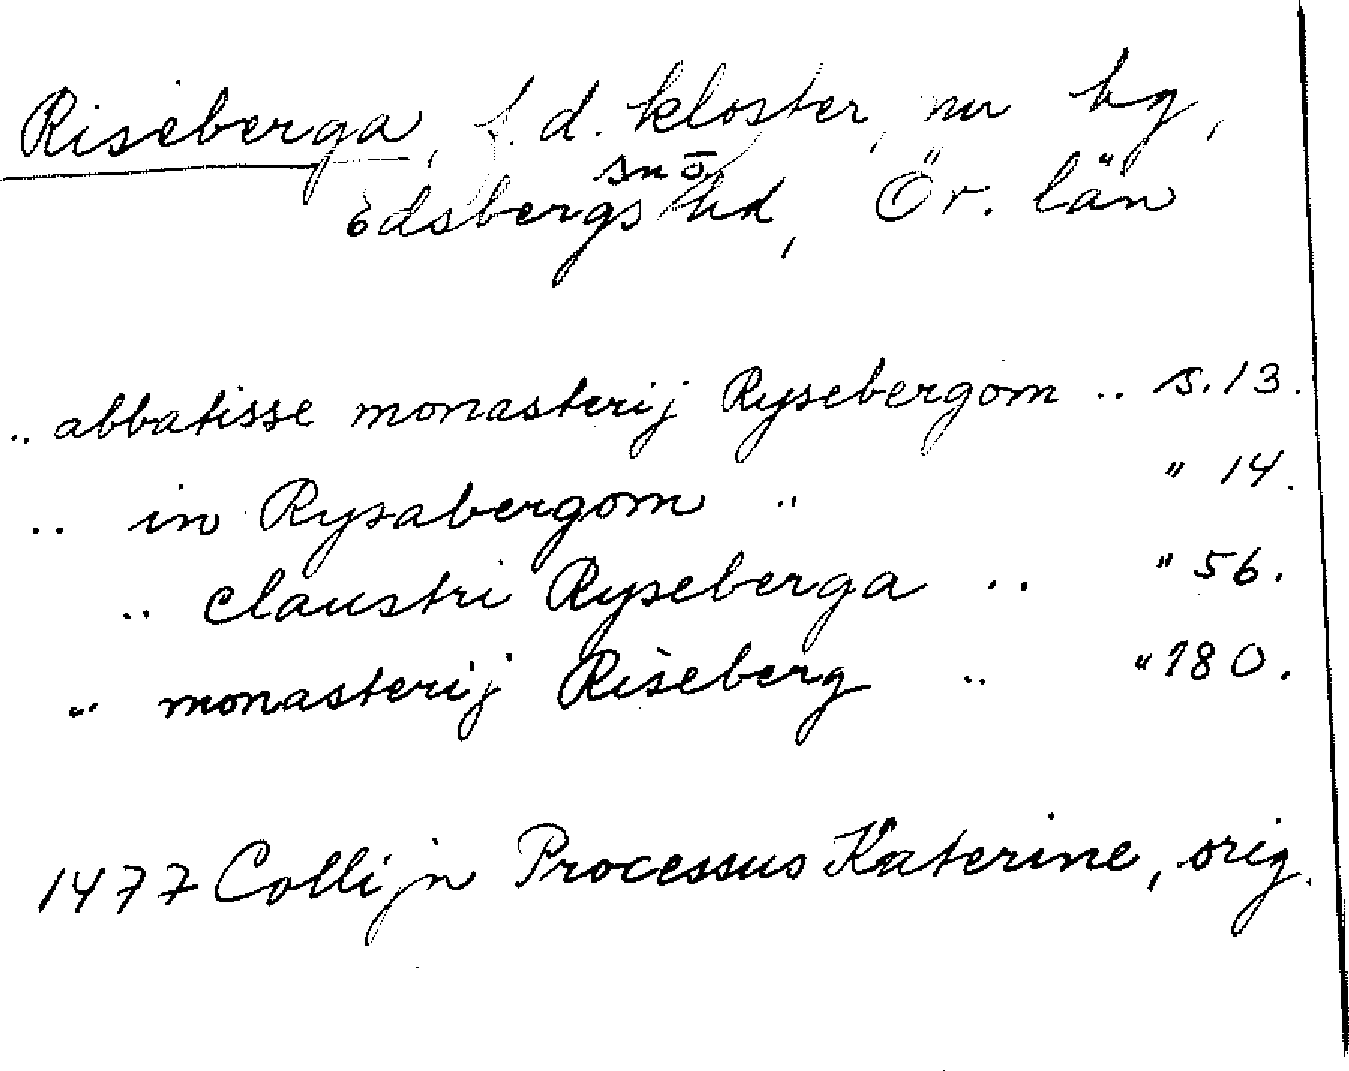 Riseberga, f.d. kloster, nu hg,
snö
Edsbergs hd, Ör. län
.. abbatisse monasterij Rysebergom .. s. 13.
.. in Rysabergom .. " 14.
.. claustri Ryseberga .. " 56.
.. monasterij Riseberg .. " 180.
1477 Collijn Processus Katerine, orig.